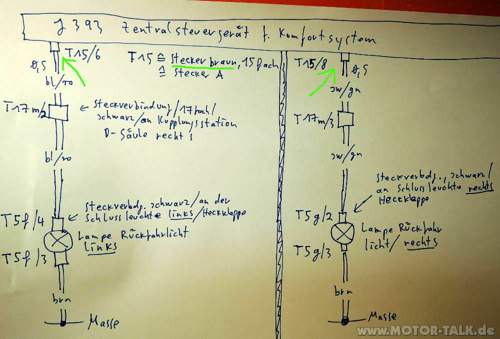 J 393 Zentralsteuergerät f. Komfortsystem
T15/6
T15 ≙ Stecker braun, 15fach
≙ Stecker A
0,5
bl/ro
T17m/2
Steckverbindung/17fach/
schwarz/an Kupplungsstation
D-Säule rechts
bl/ro
Steckverbdg. schwarz/an der
Schlussleuchte links/Heckklappe
T5f/4
Lampe Rückfahrlicht
links
T5f/3
brn
Masse
T15/8
0,5
sw/gn
T17m/3
sw/gn
Steckverbdg., schwarz/
an Schlussleuchte rechts
Heckklappe
T5g/2
Lampe Rückfahr
licht/rechts
T5g/3
brn
Masse
www.MOTOR-TALK.de